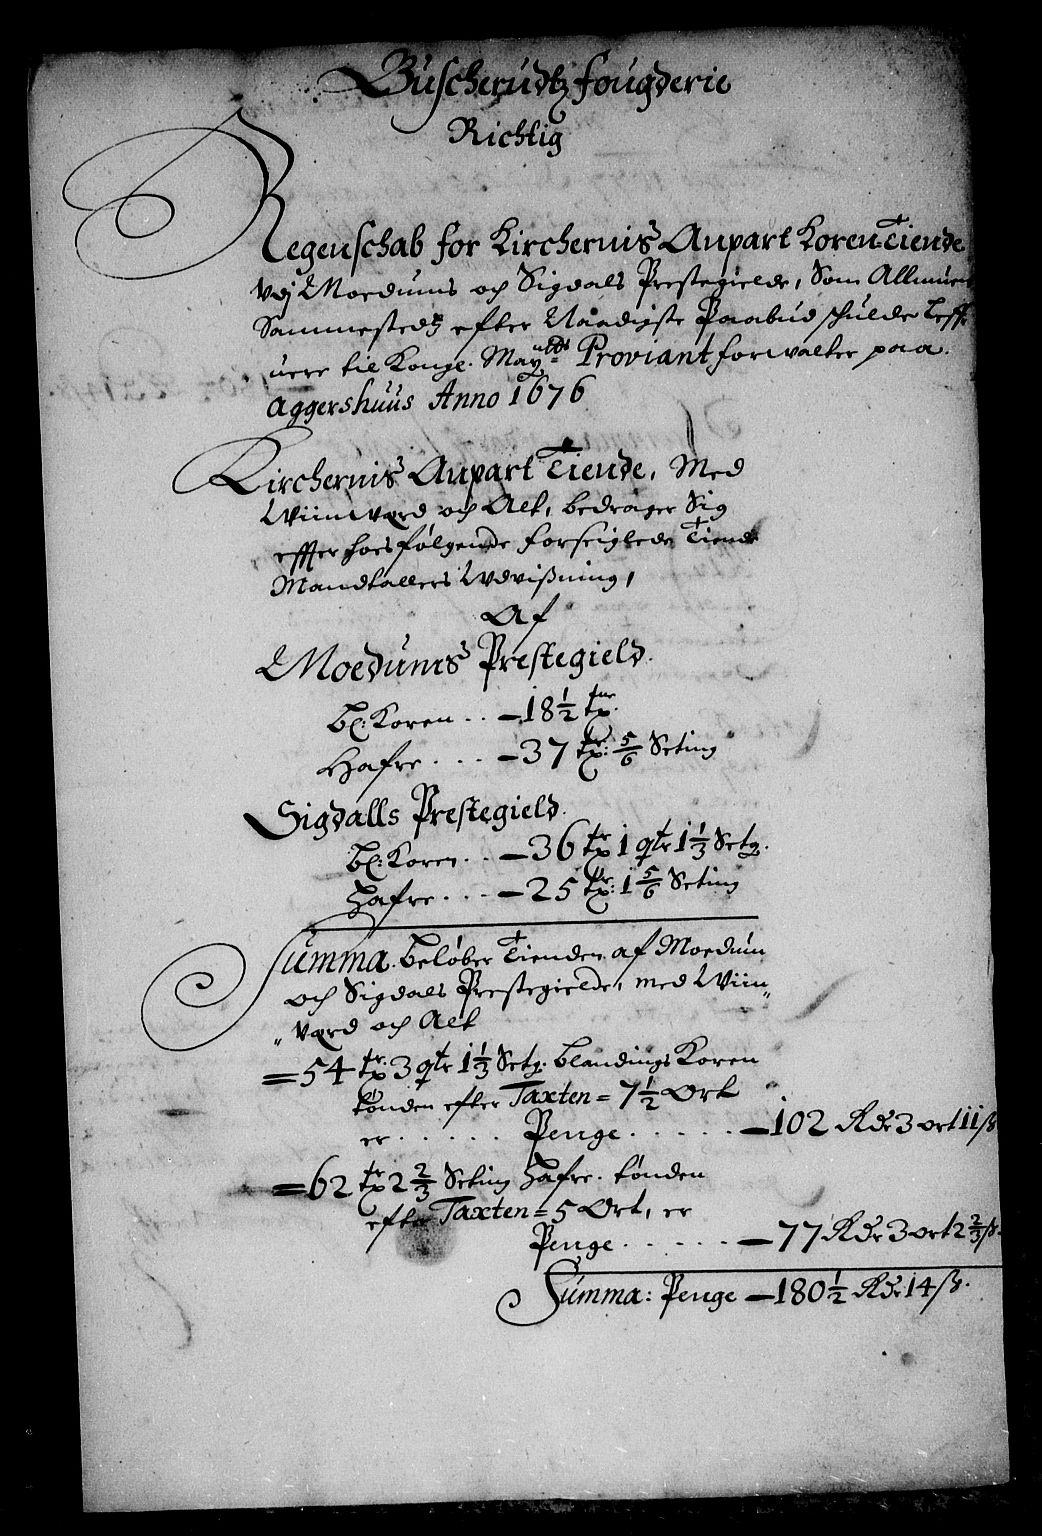 Buscherudtz fougderie
Richtig
Regenschab for Kirchernis Anpart Koren-Tiende
Udj Moedums och Sigdals Prestegielde, Som Allmuen
Sammestedtz efter Naadigste Paabud schulde leff-
uere til Konge. Maytz Proviant forwalter paa
Aggershuus Anno 1676
Kirchernis Anpart Tiende, Med
Wiinwærd och Alt, bedrager Sig
effter hoesfølgende forseiglede Tiende
Mandtallers Udvißning,
Af
Moedums Prestegield.
bl: Koren . . – 18 1/2 tnr.
Hafre . . . – 37 tr: 5/6 Seting
Sigdalls Prestegield.
bl: Koren . . – 36 tr 1 qtr 1 1/3 Setg.
Hafre . . . – 25 tr: 1 5/6 Seting
Summa. beløber Tienden af Moedum
och Sigdals Prestegielde, med Wiin„
„værd och Alt
= 54 tr. 3 qtr 1 1/3 Setg. blandings Koren
tønden efter Taxten = 7 1/2 Ort
er . . . . . . Penge . . . . . – 102 Rdr 3 ort 11 ß
= 62 tr 2 2/3 Seting Hafre. tønden
efter Taxten = 5 Ort, er
Penge . . . . . . – 77 Rdr 3 ort 2 2/3 ß.
Summa: Penge – 180 1/2 Rdr 14 ß.